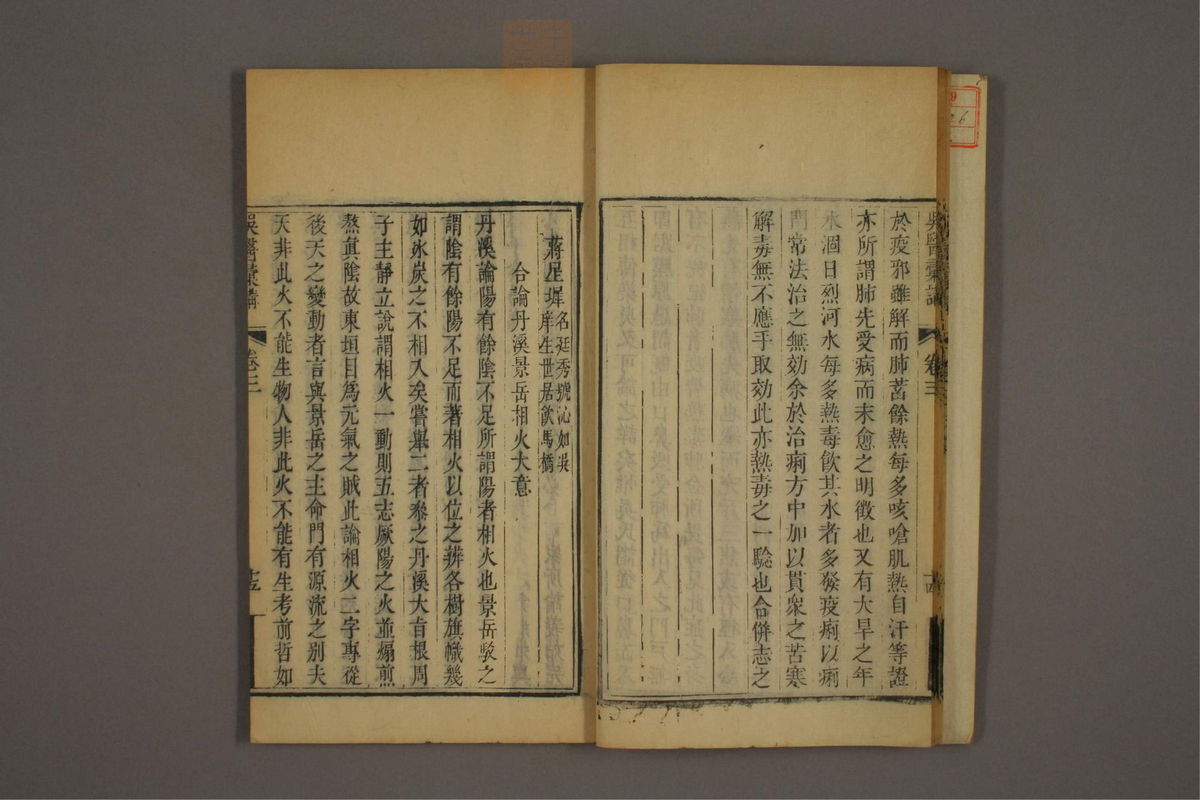 吳醫彙講 卷三 十四
於疫邪雖解而肺蓄餘熱每多咳嗆肌熱自汗等證
亦所謂肺先受病而未愈之明徵也又有大旱之年
水涸日烈河水每多熱毒飲其水者多發疫痢以痢
門常法治之無効余於治痢方中加以貫衆之苦寒
解毒無不應手取効此亦熱毒之一騐也合併志之
蔣星墀 名廷秀號沁如吳
庠生世居飮馬橋
合論丹溪景岳相火大意
丹溪論陽有餘陰不足所謂陽者相火也景岳駁之
謂陰有餘陽不足而著相火以位之辨各樹旗幟幾
如氷炭之不相入矣嘗舉二者叅之丹溪大旨根周
子主靜立說謂相火一動則五志厥陽之火並煽煎
熬眞陰故東垣目爲元氣之賊此論相火二字專從
後天之變動者言與景岳之主命門有源流之別夫
天非此火不能生物人非此火不能有生考前哲如
吳醫彙講 卷三 十五